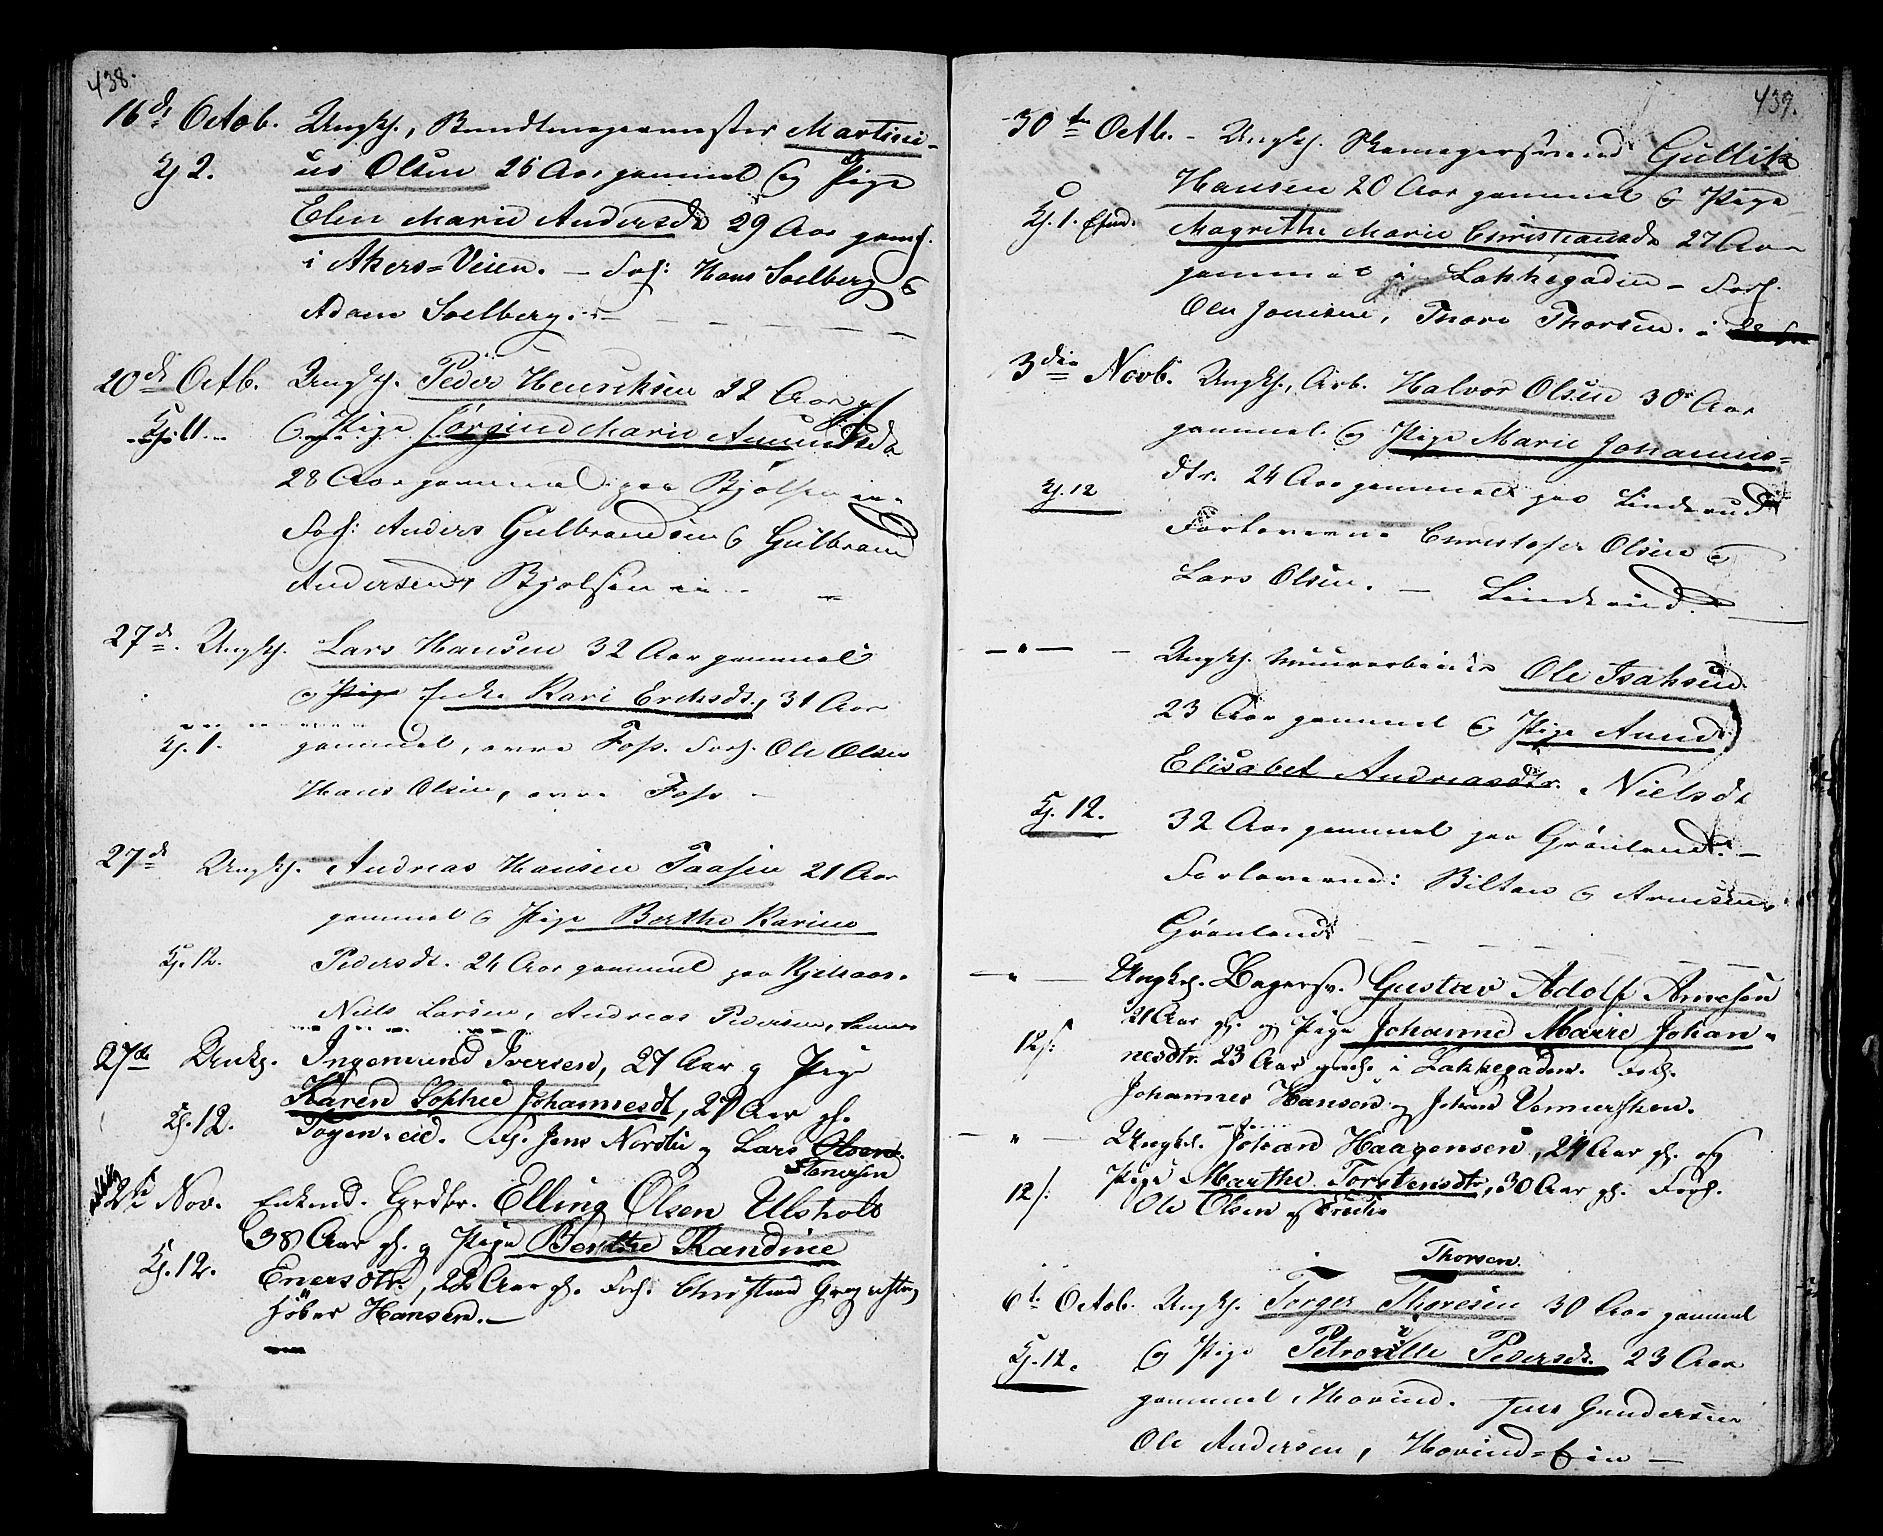 438.
16de Octob. Ungk., Bundtmagermester Martini-
Kl 2. us Olsen 25 Aar gammel og Pige
Elen Marie Andersdt 29 Aar gaml.
i Akers=Veien. — Forl: Hans Soelberg &
Adam Soelberg.
20de Octb. Ungk. Peder Henriksen 22 Aar gl
Kl. 11. og Pige Jørgine Marie Amundsdt
28 Aar gammel paa Bjølsen
Forl: Anders Gulbrandsen og Gulbrand
Andersen, Bjølsen
27de. Ungk. Lars Hansen 32 Aar gammel
og Pige Enke Kari Ericksdt., 31 Aar
Kl. 1. gammel, Foss. Forl. Ole Olsen
Hans Olsen, Foss —
27de Ungk. Andreas Hansen Taasen 21 Aar
gammel og Pige Berthe Karine
Kl. 12. Pedersdt. 24 Aar gammel paa Kjelsaas.
Niels Larsen, Andreas Pedersen,
27de Unkp. Ingemund Iversen, 27 Aar og Pige
Karen Sophie Johannesdt, 27 Aar gl.
Kl. 12. Tøyen-eie. Fl. Jens Nordlie og Lars Olsen
Stenersen
2de Nov. Enkmd. Grdbr. Elling Olsen Ulsholt
38 Aar gl. og Pige Berthe Randine
Kl. 12. Enersdtr, 22 Aar gl. Forl. Christian
Hansen. —
439.
30te Octb. - Ungk. Skomagersvend Gullik
Hansen 20 Aar gammel og Pige
Kl. 1. Magrethe Marie Christiansdt 27 Aar
gammel i Lakkegaden - Forl.
Ole Jonsen, Thore Thorsen.
3die Novb. Ungk., Arb. Halvor Olsen 30 Aar
gammel og Pige Marie Johannis-
dtr. 24 Aar gammel paa Linderud
Kl. 12 Forloverne Christofer Olsen og
Lars Olsen. — Linderud.
— " — Ungk. Muurarbeider Ole Isaksen
23 Aar gammel og Pige Anne
Elisabet Andreasdtr. Nielsdt
Kl. 12. 32 Aar gammel paa Grønland. —
Forloverne: Biltan og Arnesen
Grønland
— " — Ungk. Bagersv. Gustav Adolf Arnesen
21 Aar gl. og Pige Johanne Marie Johan-
12 /: nesdtr. 23 Aar gml. i Lakkegaden. Forl.
Johannes Hansen og Johan
— " — Ungk. Johan Haagensen, 24 Aar gl. og
12 /: Pige Marthe Torstensdtr, 30 Aar gl. Forl.
Ole Olsen og
Thorsen.
6te Octob. Ungk. Torger Thoresen 30 Aar gammel
Kl. 12. og Pige Petronille Pedersdt. 23 Aar
gammel Hovind. Jens Gundersen
Ole Andersen, Hovind-Eie —